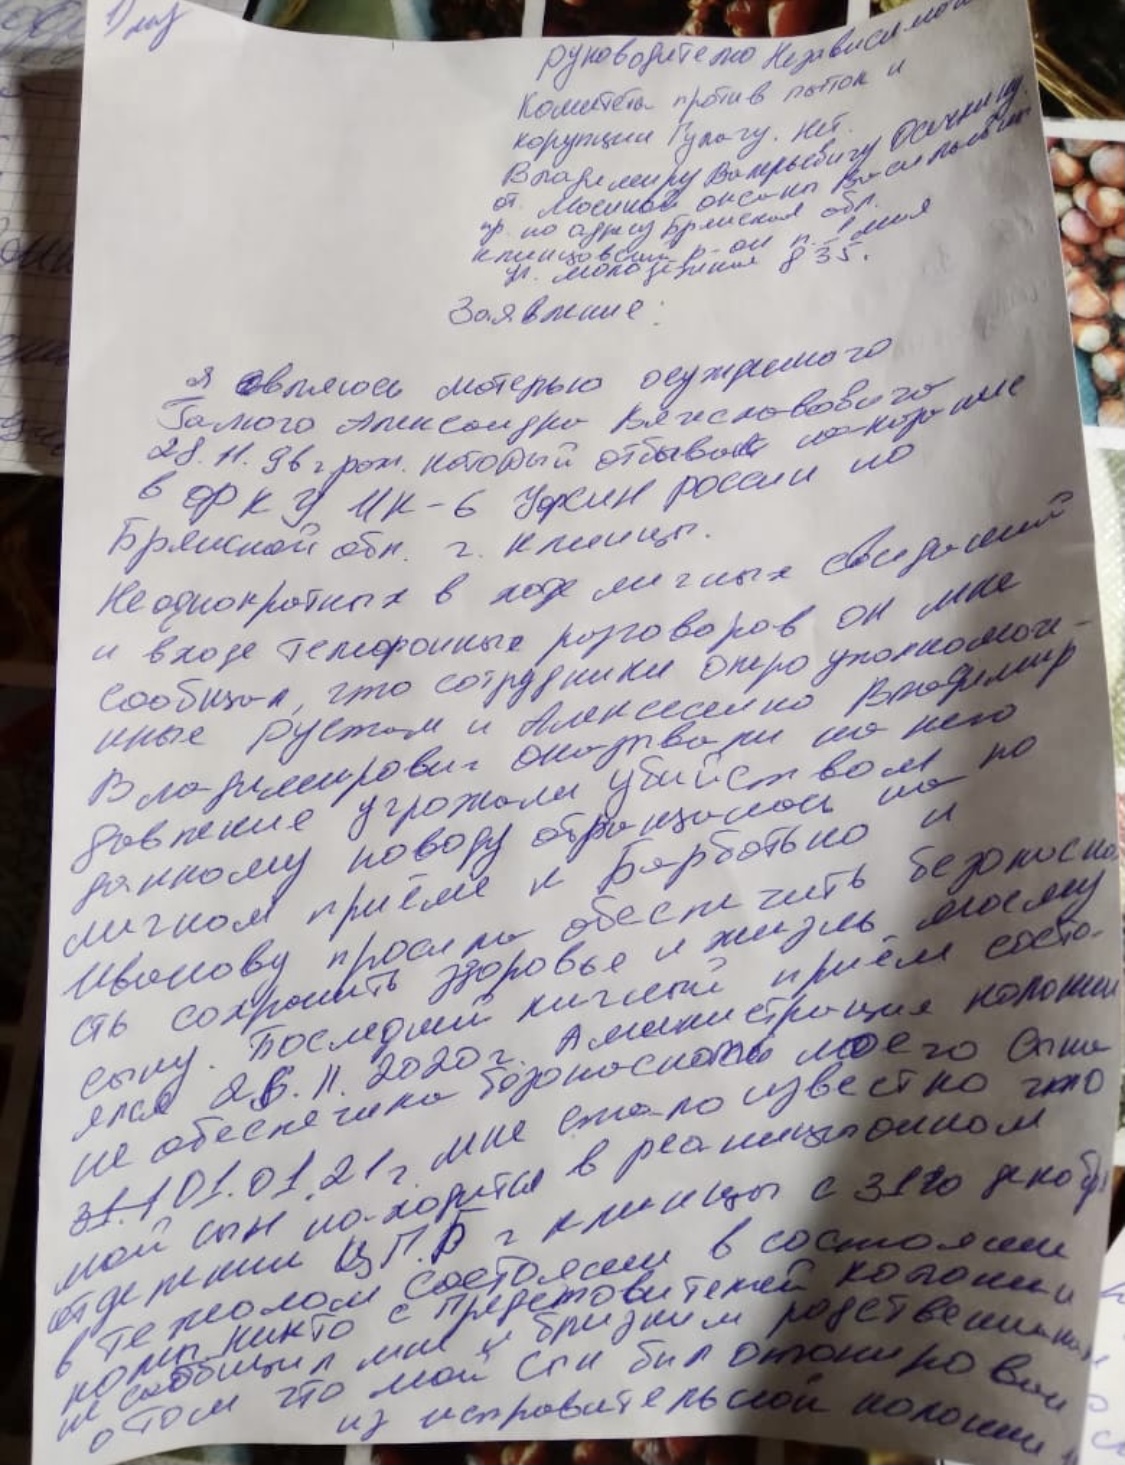 1) лаз
Руководителю Независимого
Комитета против пыток и
корупции Гулагу. Нет.
Владимиру Валерьевичу Осечкину.
от Мосиной Оксаны Васильевны
пр. по адресу Брянская обл.
Клинцовский р-он п. 1 мая
ул. молодёжная д 35.
Заявление:
я явьляюсь матерью осужденого
Галюго Александра Вячеславовича
28.11.96 г рож. который отбывает наказание
в ФКУ ИК-6 Уфсин россии по
Брянской обл. г. Клинцы.
Неоднократных в ходе личных свиданий
и входе телефонных розговоров он мне
сообщал, что сотрудники оперуполномочен-
ные Рустам и Алексеенко Владимир
Владимирович оказывали на него
давление угрожали убийством по
данному поводу обращалась на
личном приёме к Барботько и
Иванову просила обеспечить безопасно
сть сохранить здоровье и жизнь моему
сыну. Последний личный приём состо-
ялся 26.11.2020г. Аминистрация колонии
не обеспечила безопасность моего Сына
31.1 01.01.21г. мне стало известно что
мой сын находится в реанищионном
отделении ЦГБ г Клинцы с 31го декабр
в тежолом состоянии в состоянии
комы никто с Представителей колонии
не сообщил мне и близким родственикам
о том что мой Сын был отопирован
из исправительной колонии